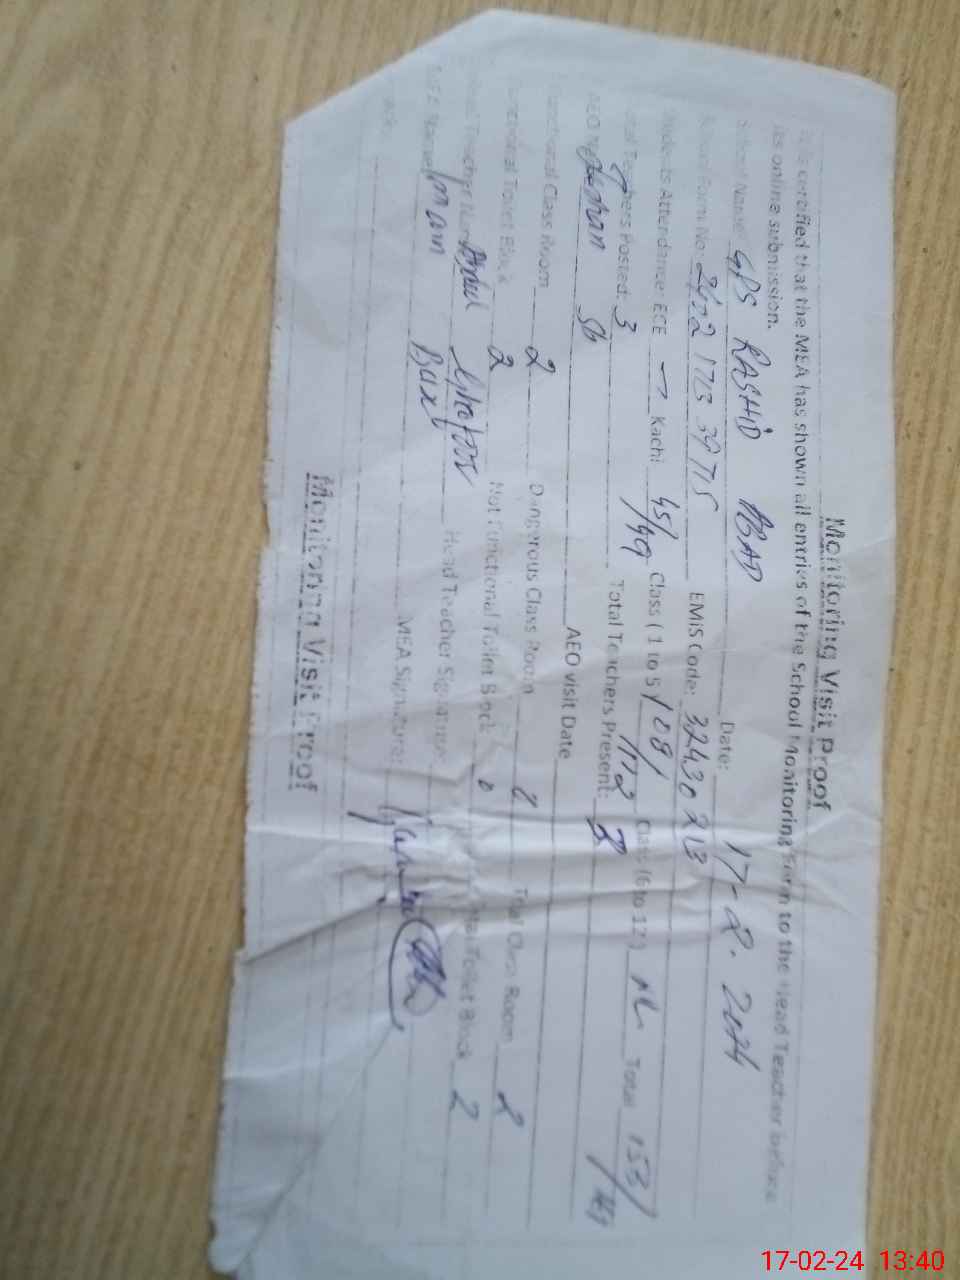 Monitoring Visit Proof
is certified that the MEA has shown all entries of the School Monitoring Form to the Head Teacher before
its online submission.
School Name: GPS RASHID ABAD Date: 17-2-2024
Form No: EMIS Code: 32430213
Students Attendance: ECE Kachi 45/49 Class (1 to 5) 108/112 Class (6 to 12) Total 153/
Teachers Posted: 3 Total Teachers Present: 3
AEO Sb AEO visit Date
Class Room 2 Dangerous Class Room Total Class Room 2
Toilet Block 2 Not Functional Toilet Block 0 Total Toilet Block 2
Teacher Name Abdul Head Teacher Signature
Name Imam Bux MEA Signature:
Monitoring Visit Proof
17-02-24 13:40